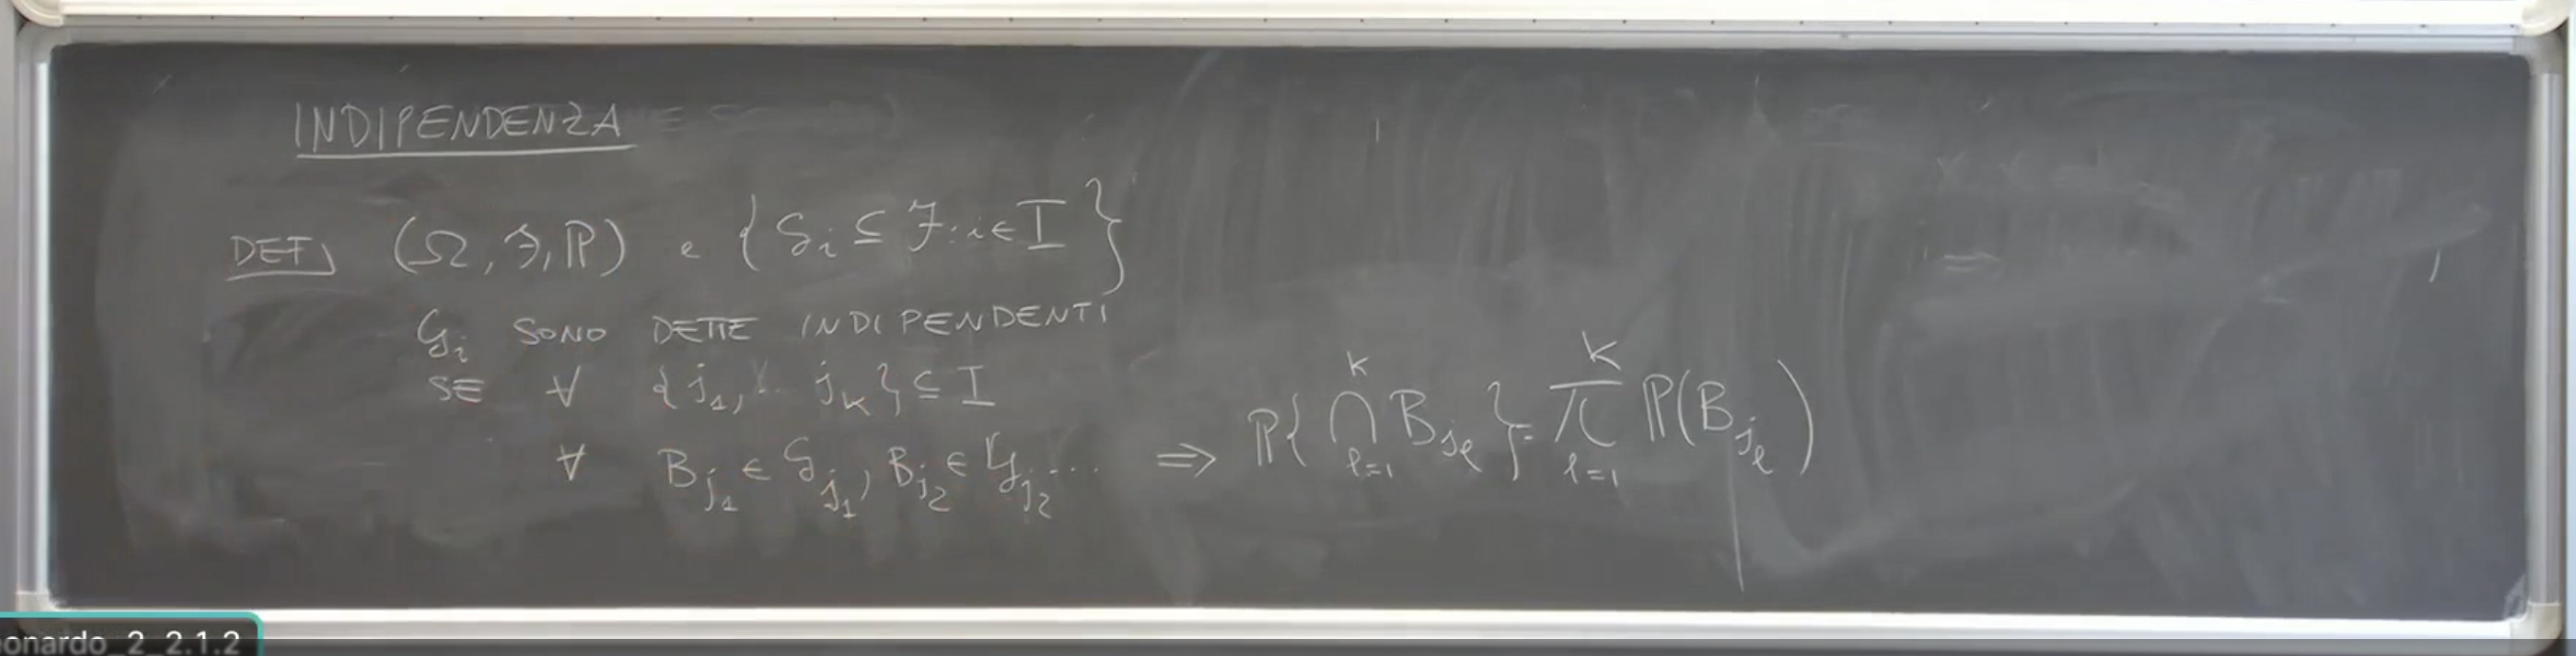 INDIPENDENZA
DEF) (Ω, ℱ, ℙ) e { 𝒢ᵢ ⊆ ℱ : i ∈ I }
𝒢ᵢ SONO DETTE INDIPENDENTI
SE ∀ {j₁, ... jₖ} ⊆ I
∀ B_{j₁} ∈ 𝒢_{j₁}, B_{j₂} ∈ 𝒢_{j₂} ... ⇒ ℙ{ ⋂_{ℓ=1}^{K} B_{j_ℓ} } = ∏_{ℓ=1}^{K} ℙ(B_{j_ℓ})
onardo_2_2.1.2